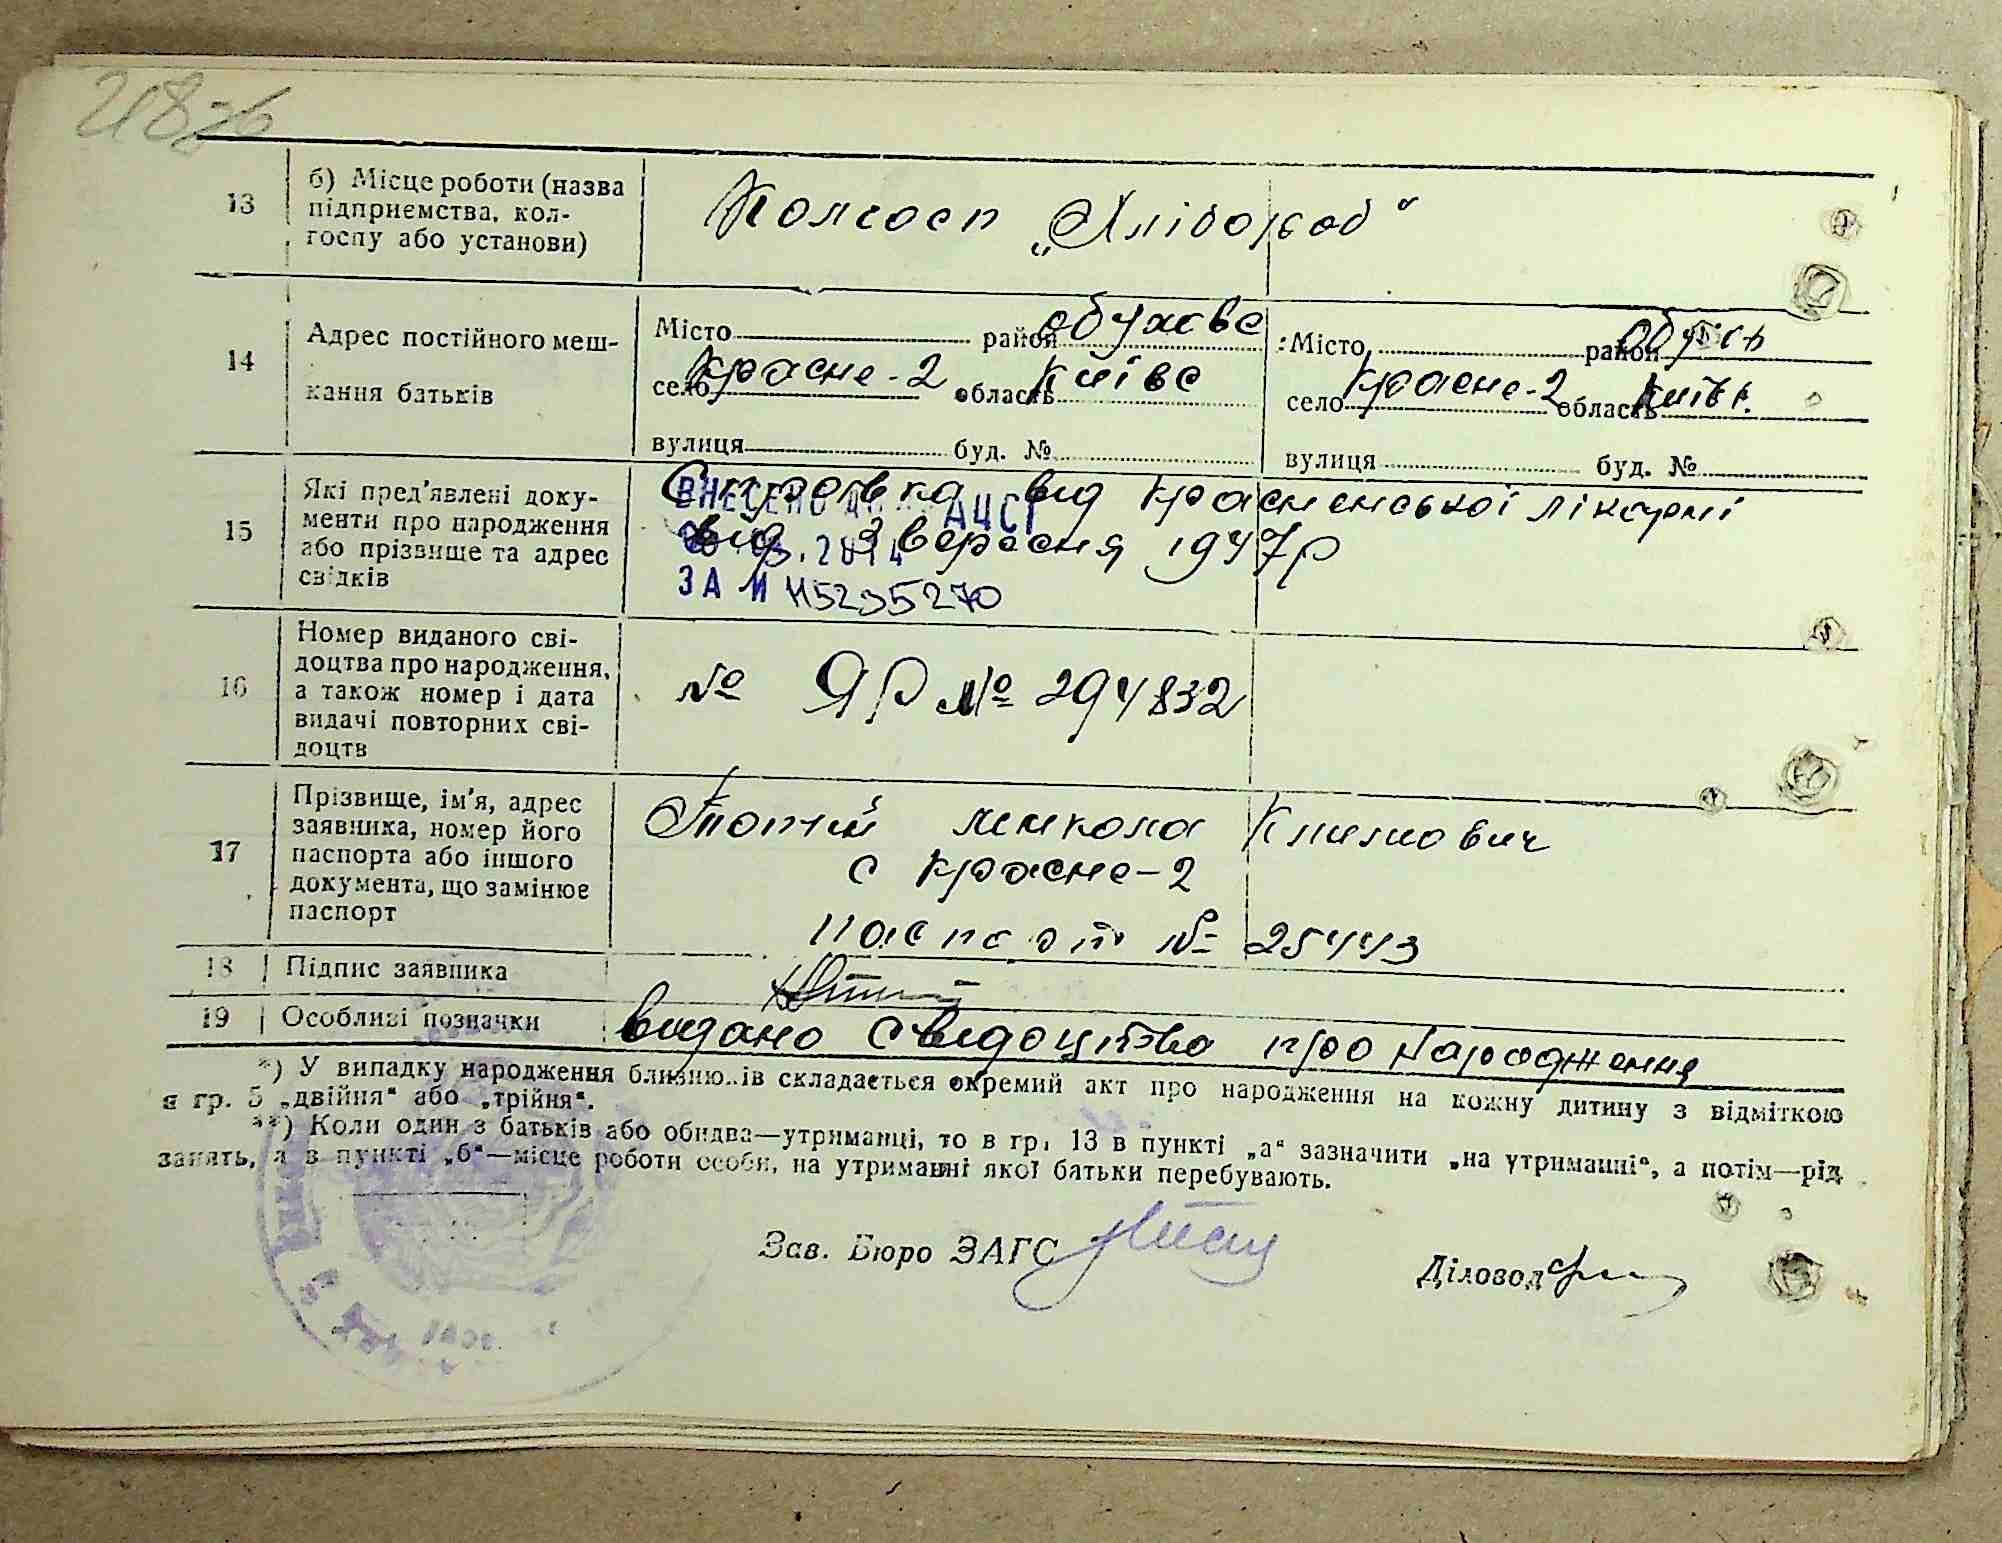 218зб
13 б) Місце роботи (назва підприємства, кол-госпу або установи) Колгосп „Хлібороб“
14 Адрес постійного меш-кання батьків
Місто район обухівс
село Красне-2 область Київс
вулиця буд. №
Місто район Обухів
село Красне-2 область Київс.
вулиця буд. №
15 Які пред'явлені доку-менти про народження або прізвище та адрес свідків
Справка від Красненської лікарні
від 3 вересня 1947р
ВНЕСЕНО ДО АЦСГ
2014
ЗА № 115235270
16 Номер виданого сві-доцтва про народження, а також номер і дата видачі повторних сві-доцтв
№ ЯР № 294832
17 Прізвище, ім'я, адрес заявника, номер його паспорта або іншого документа, що замінює паспорт
Потій микола Климович
с Красне-2
паспорт № 25443
18 Підпис заявника
19 Особливі позначки видано свидоцтво про народження
*) У випадку народження близнюків складається окремий акт про народження на кожну дитину з відміткою
в гр. 5 „двійня“ або „трійня“.
**) Коли один з батьків або обидва—утриманці, то в гр. 13 в пункті „а“ зазначити „на утриманні“, а потім—рід
занять, а в пункті „б“—місце роботи особи, на утриманні якої батьки перебувають.
Зав. Бюро ЗАГС
Діловод